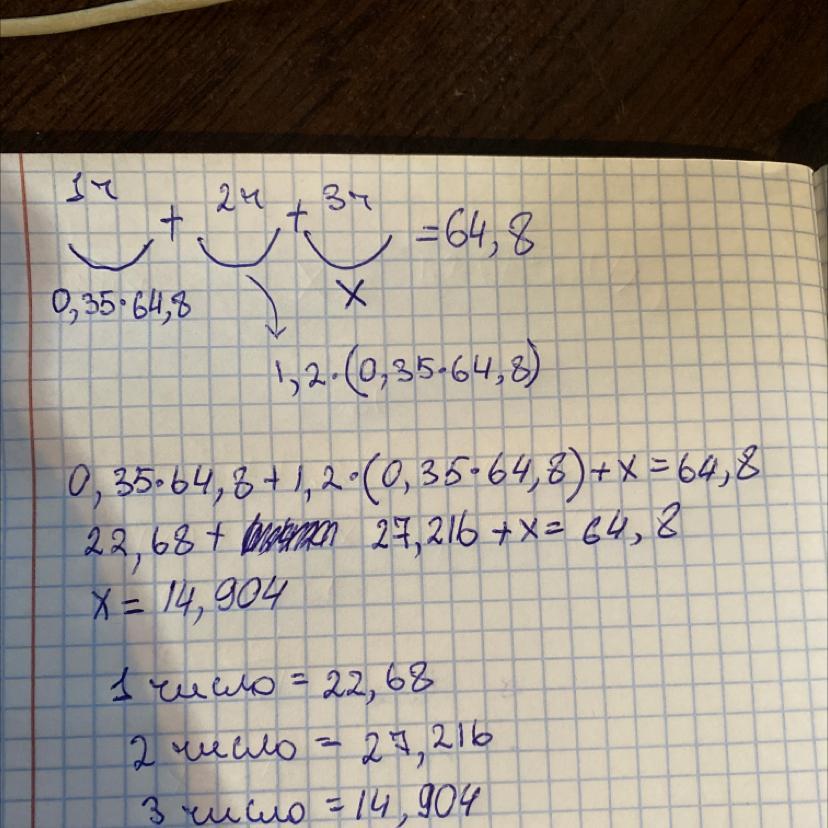 1ч + 2ч + 3ч = 64,8
0,35·64,8 x
1,2·(0,35·64,8)
0,35·64,8+1,2·(0,35·64,8)+x=64,8
22,68+ 27,216+x= 64,8
x= 14,904
1 число = 22,68
2 число = 27,216
3 число =14,904